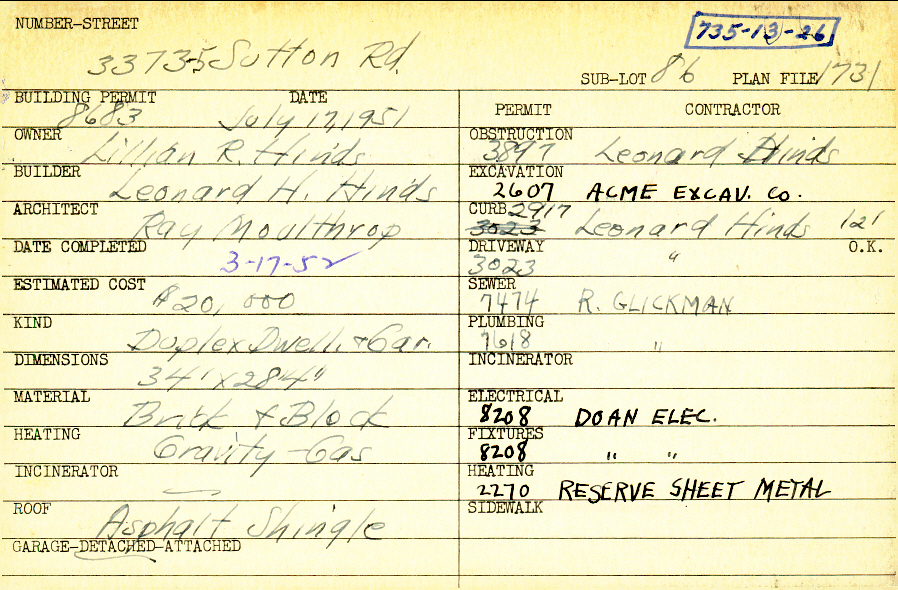 NUMBER-STREET
735-13-26
33735 Sutton Rd.
SUB-LOT 86 PLAN FILE 1731
BUILDING PERMIT DATE
8683 July 17, 1951
OWNER
Lillian R. Hinds
BUILDER
Leonard H. Hinds
ARCHITECT
Ray Moulthrop
DATE COMPLETED
3-17-52
ESTIMATED COST
$20,000
KIND
Duplex Dwell. & Gar.
DIMENSIONS
34' x 28'4"
MATERIAL
Brick & Block
HEATING
Gravity - Gas
INCINERATOR
—
ROOF
Asphalt Shingle
GARAGE-DETACHED-ATTACHED
PERMIT CONTRACTOR
OBSTRUCTION
3897 Leonard Hinds
EXCAVATION
2607 ACME EXCAV. CO.
CURB 2917
3023 Leonard Hinds 12'
DRIVEWAY " O.K.
3023
SEWER
7474 R. GLICKMAN
PLUMBING
7618 "
INCINERATOR
ELECTRICAL
8208 DOAN ELEC.
FIXTURES
8208 " "
HEATING
2270 RESERVE SHEET METAL
SIDEWALK